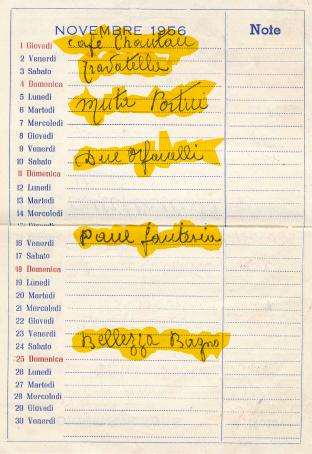 NOVEMBRE 1956 Note
1 Giovedì Café Chantau
2 Venerdì
3 Sabato Travatelle
4 Domenica
5 Lunedì
6 Martedì
7 Mercoledì
8 Giovedì
9 Venerdì
10 Sabato Due Orfanelli
11 Domenica
12 Lunedì
13 Martedì
14 Mercoledì
16 Venerdì
17 Sabato
18 Domenica
19 Lunedì
20 Martedì
21 Mercoledì
22 Giovedì
23 Venerdì
24 Sabato Bellezza Bagno
25 Domenica
26 Lunedì
27 Martedì
28 Mercoledì
29 Giovedì
30 Venerdì